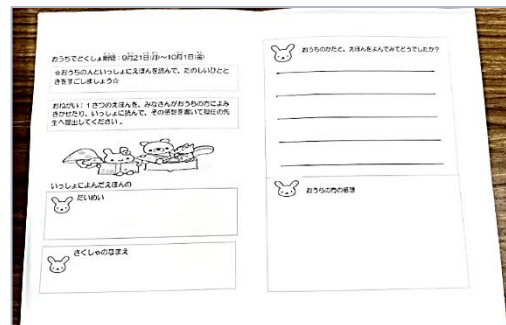 おうちでどくしょ期間：9月21日(月)～10月1日(金)
☆おうちの人といっしょにえほんを読んで、たのしいひとと
きをすごしましょう☆
おねがい：1さつのえほんを、みなさんがおうちの方によみ
きかせたり、いっしょに読んで、その感想を書いて担任の先
生へ提出してください。
いっしょによんだえほんの
だいめい
さくしゃのなまえ
おうちのかたと、えほんをよんでみてどうでしたか？
おうちの方の感想